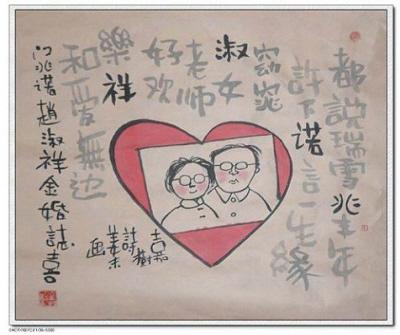 都說瑞雪兆丰年
許下诺言一生緣
窈窕
淑女
老师
好欢
樂祥
和爱無边
门兆诺趙淑祥金婚誌喜
詩
姜末
画